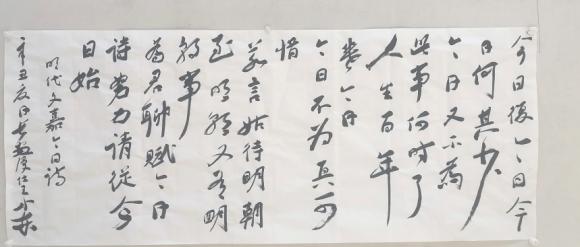 今日復今日今
日何其少
今日又不為
此事何时了
人生百年
今日
今日不为真可
惜
若言姑待明朝
至明朝又有明
朝事
為君聊赋今日
诗努力请從今
日始
明代文嘉今日诗
辛丑夏日